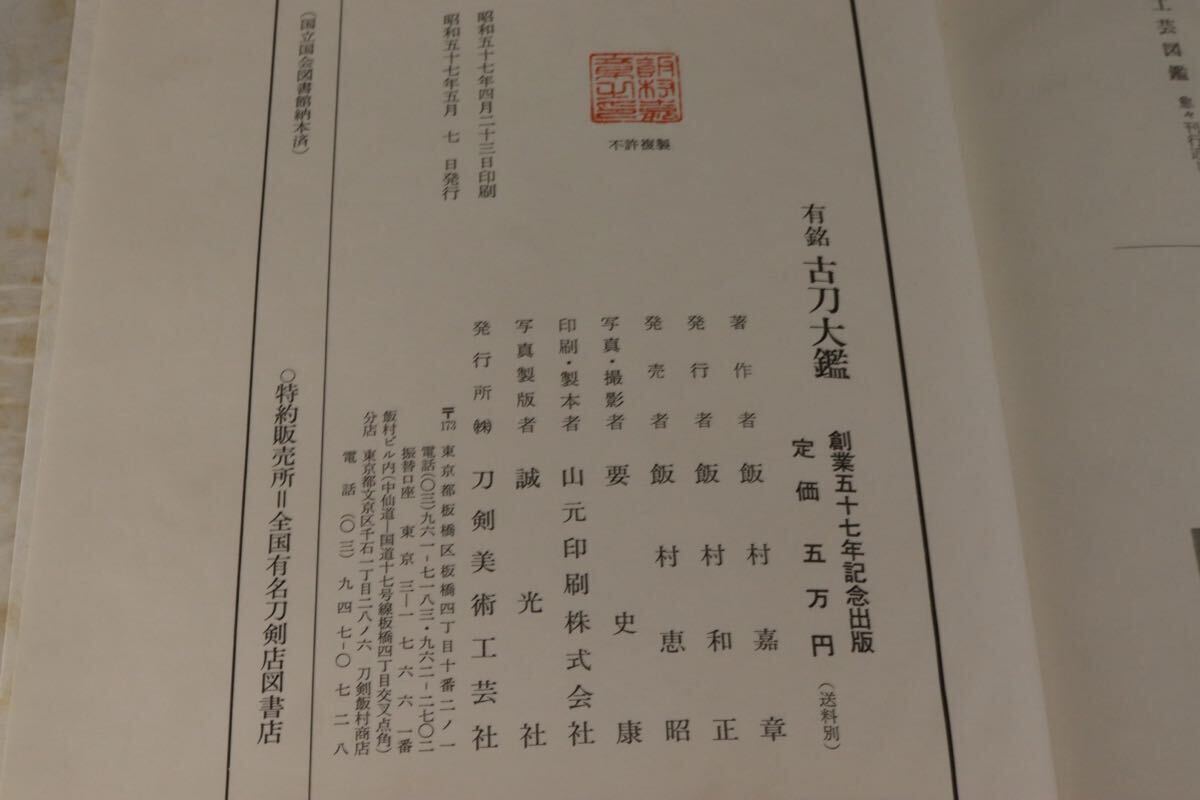 工芸図鑑
有銘 古刀大鑑
創業五十七年記念出版
定価 五万円 (送料別)
著作者 飯村嘉章
発行者 飯村和正
発売者 飯村恵昭
写真・撮影者 要史康
印刷・製本者 山元印刷株式会社
写真製版者 誠光社
発行所 ㈱ 刀剣美術工芸社
〒173 東京都板橋区板橋四丁目十番二ノ一
電話(〇三)九六一-七一八三・九六二-二七〇二
振替口座 東京三―一七六六一番
飯村ビル内(中仙道―国道十七号線板橋四丁目交叉点角)
分店 東京都文京区千石一丁目二八ノ六 刀剣飯村商店
電話(〇三)九四七-〇七二八
不許複製
昭和五十七年四月二十三日印刷
昭和五十七年五月 七 日発行
(国立国会図書館納本済)
○特約販売所＝全国有名刀剣店図書店